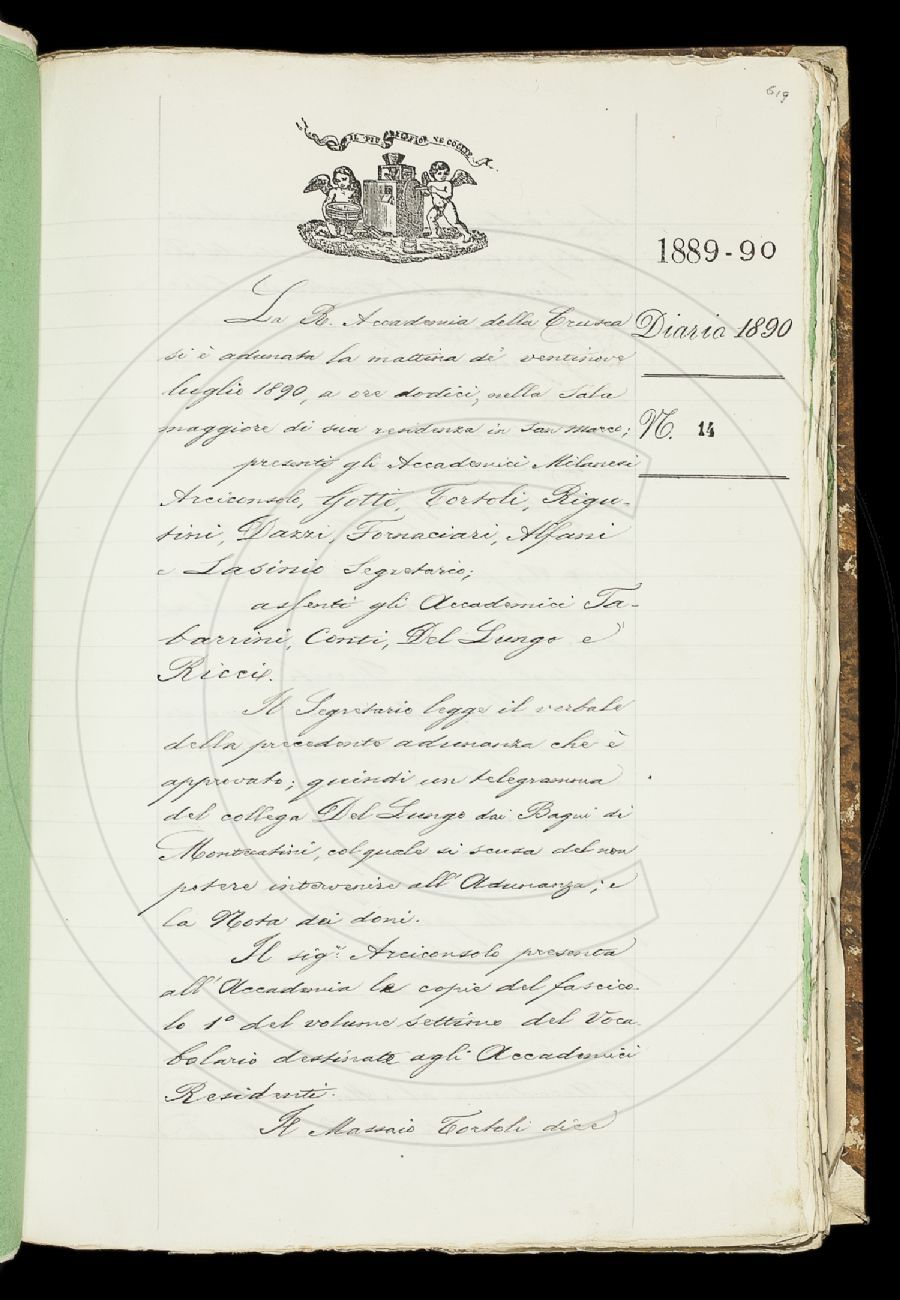 619
IL PIÙ BEL FIOR NE COGLIE
1889-90
Diario 1890
N. 14
La R. Accademia della Crusca
si è adunata la mattina de' ventinove
luglio 1890, a ore dodici, nella Sala
maggiore di sua residenza in San Marco;
presenti gli Accademici Milanesi
Arciconsolo, Gotti, Tortoli, Rigu-
tini, Dazzi, Fornaciari, Alfani
e Lasinio Segretario;
assenti gli Accademici Ta-
barrini, Conti, Del Lungo e
Ricci.
Il Segretario legge il verbale
della precedente adunanza che è
approvato; quindi un telegramma
del collega Del Lungo dai Bagni di
Montecatini, col quale si scusa del non
potere intervenire all'Adunanza; e
la Nota dei doni.
Il sigr. Arciconsolo presenta
all'Accademia le copie del fascico-
lo 1° del volume settimo del Voca
bolario destinate agli Accademici
Residenti.
Il Massaio Tortoli dice